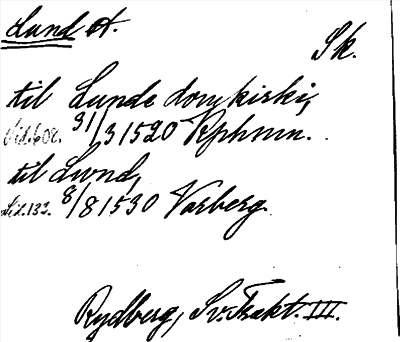 Lund st.
Sk.
til Lunde domkirki,
Sid. 608. 31/3 1520 Kphmn.
til Lund,
Sid. 133. 8/8 1530 Varberg.
Rydberg, Sv. Trakt. III.